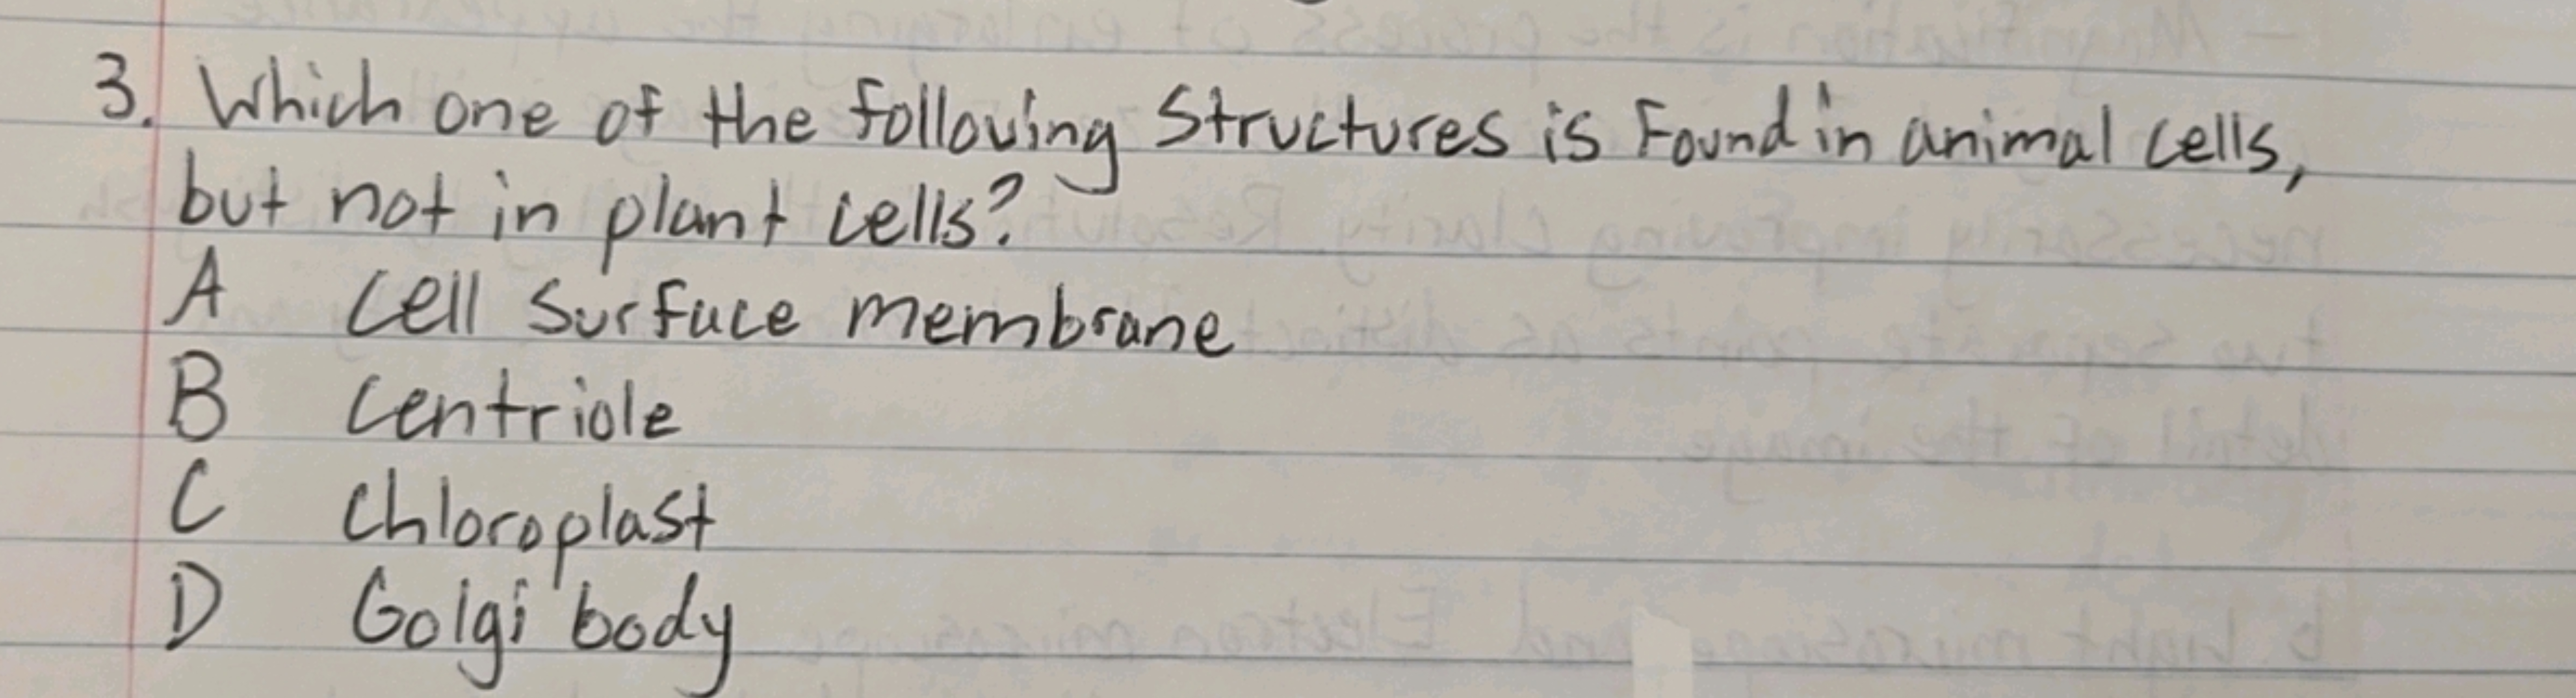 3. Which one of the following Structures is Found in animal cells,
but not in plant cells?
A cell surface membrane
B centriole
C chloroplast
D Golgi body